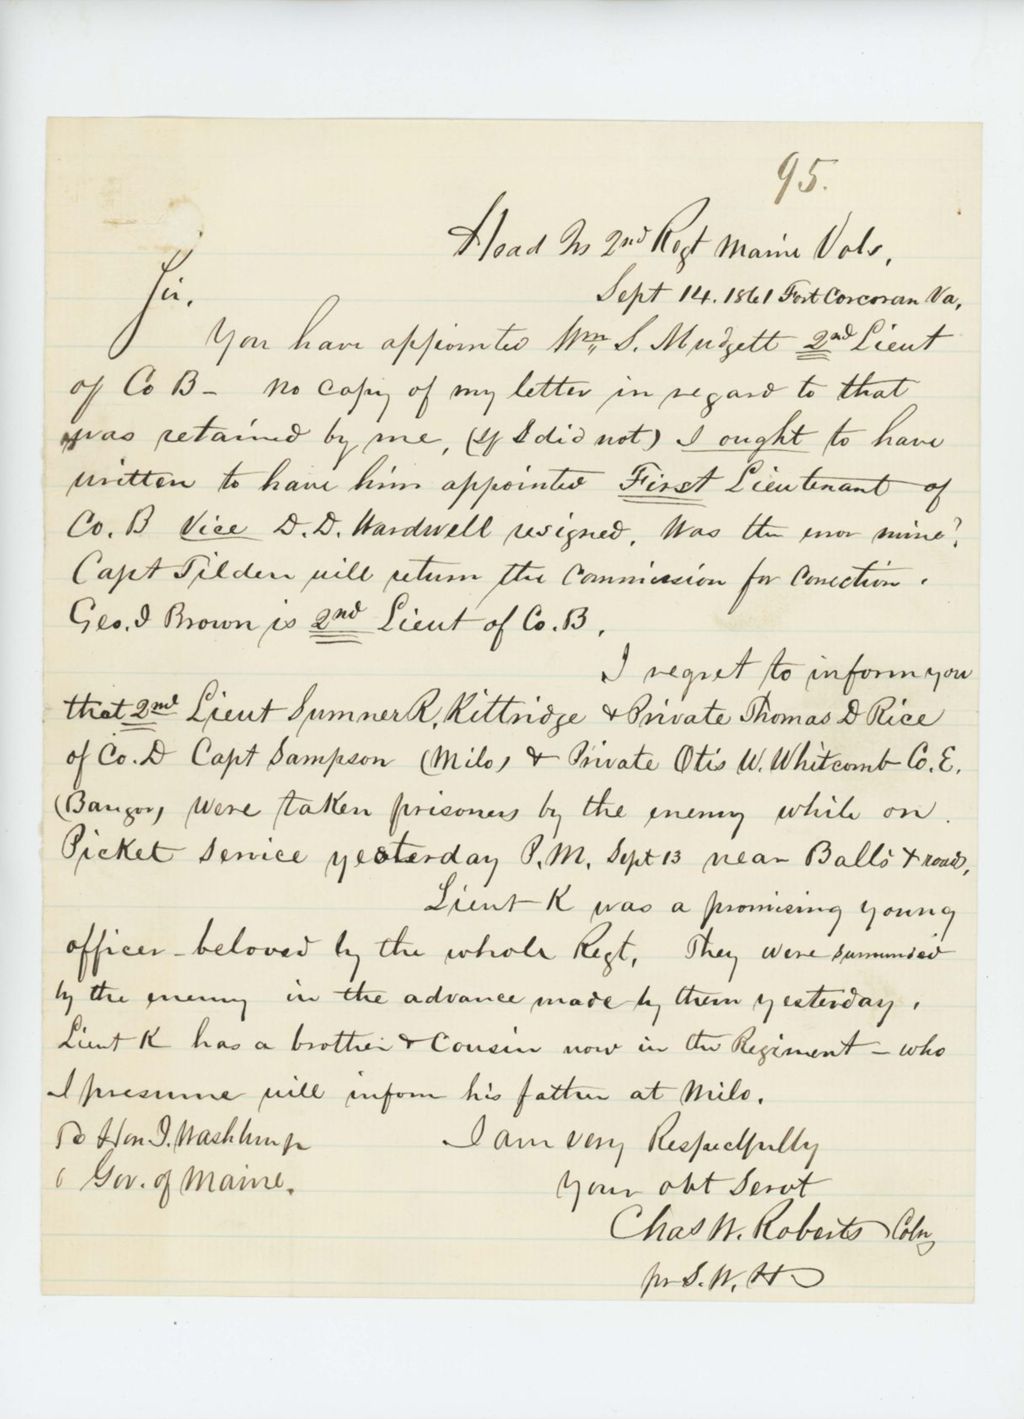 95.
Head Qrs 2nd Regt Maine Vols,
Sept 14. 1861 Fort Corcoran Va,
Sir,
You have appointed Wm S. Mudgett 2nd Lieut
of Co B - no copy of my letter in regard to that
was retained by me, (If I did not) I ought to have
written to have him appointed First Lieutenant of
Co. B Vice D. D. Wardwell resigned. Was the error mine?
Capt Tilden will return the Commission for Correction.
Geo. I Brown is 2nd Lieut of Co. B.
I regret to inform you
that 2nd Lieut Sumner R. Kittridge & Private Thomas D Rice
of Co. D Capt Sampson (Milo) & Private Otis W. Whitcomb Co. E.
(Bangor) were taken prisoners by the enemy while on
Picket Service yesterday P.M. Sept 13 near Balls X roads.
Lieut K was a promising young
officer - beloved by the whole Regt, They were surrounded
by the enemy in the advance made by them yesterday.
Lieut K has a brother & Cousin now in the Regiment - who
I presume will inform his father at Milo.
To Hon I. Washburn Jr
Gov. of Maine.
I am very Respectfully
Your obt Servt
Chas W. Roberts Coln
pr S. W. H